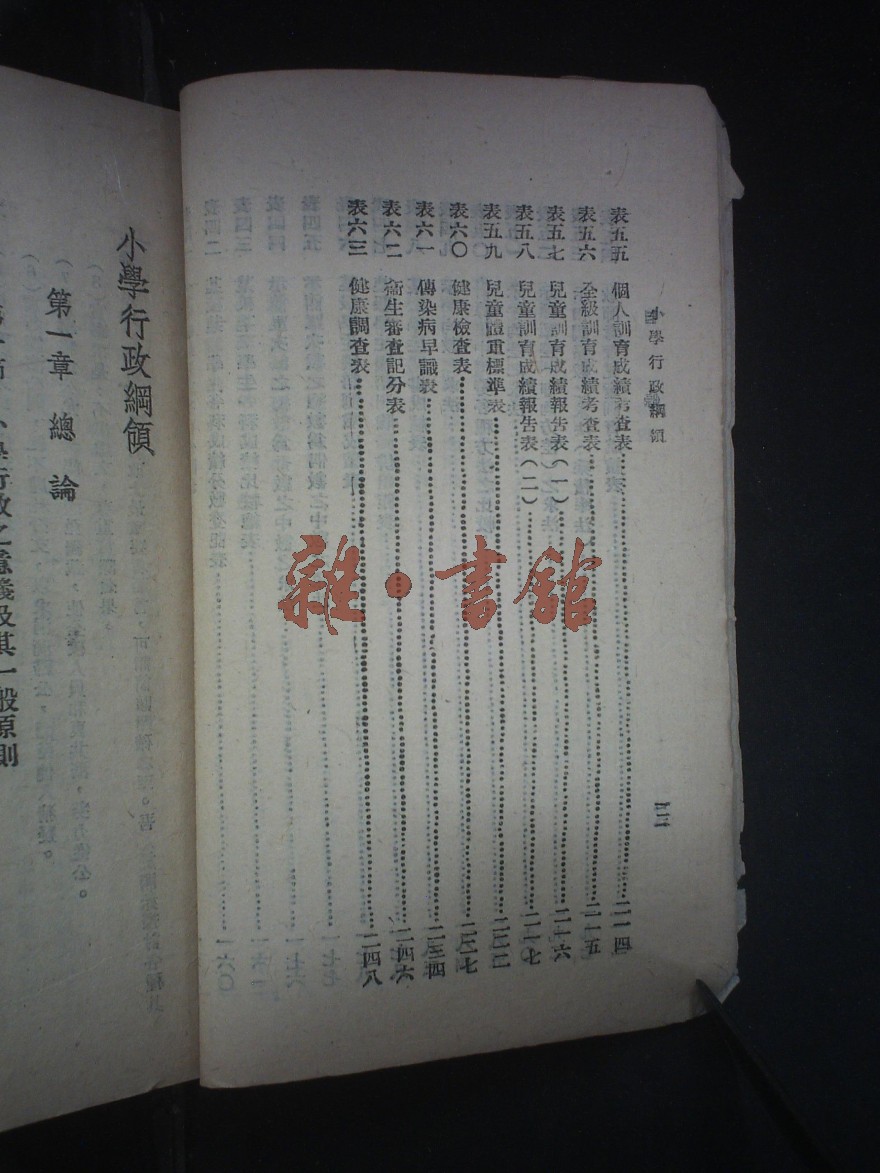 小學行政綱領
表五五 個人訓育成績考查表……二一四
表五六 全級訓育成績考查表……二一五
表五七 兒童訓育成績報告表(一)……二一六
表五八 兒童訓育成績報告表(二)……二一七
表五九 兒童體重標準表……二二二
表六〇 健康檢查表……二二七
表六一 傳染病早識表……二三四
表六二 衞生審查記分表……二四六
表六三 健康調查表……二四八
雜·書館
小學行政綱領
第一章 總論
小學行政之意義及其一般原則